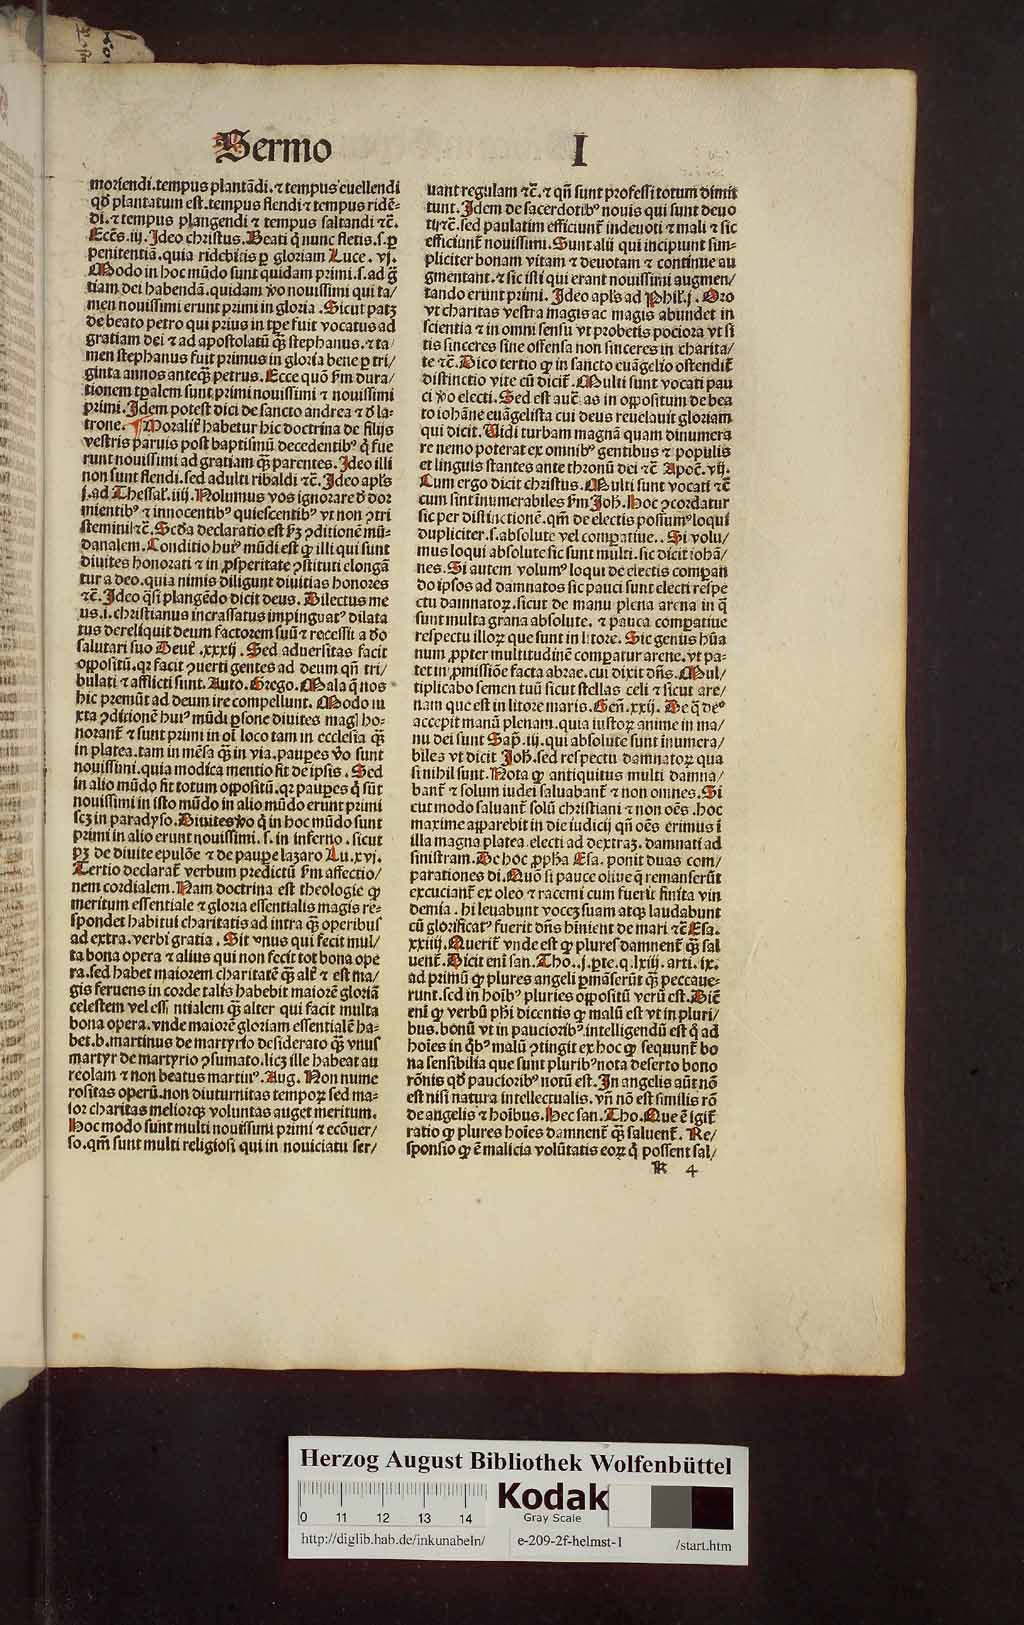 Sermo I
moriendi.tempus plantãdi.⁊ tempus euellendi
qð plantatum est.tempus flendi ⁊ tempus ridẽ-
di.⁊ tempus plangendi ⁊ tempus saltandi ⁊c̃.
Ecc̃s.iij. Ideo christus. Beati q̇ nunc fletis.s.ꝑ
penitentiã.quia ridebitis ꝑ gloriam Luce.vj.
Modo in hoc mũdo sunt quidam primi.s.ad gr̃
tiam dei habendã.quidam ṽo nouissimi qui ta/
men nouissimi erunt primi in gloria. Sicut patꝫ
de beato petro qui prius in tꝑe fuit vocatus ad
gratiam dei ⁊ ad apostolatũ q̃ꝫ stephanus.⁊ ta
men stephanus fuit primus in gloria bene ꝑ tri/
ginta annos anteq̃ꝫ petrus. Ecce quõ ẜm dura/
tionem tꝑalem sunt primi nouissimi ⁊ nouissimi
primi. Idem potest dici de sancto andrea ⁊ ð la-
trone. ¶ Moralit̃ habetur hic doctrina de filijs
vestris paruis post baptismũ decedentibꝰ q̇ fue
runt nouissimi ad gratiam q̃ꝫ parentes. Ideo illi
non sunt flendi.sed adulti ribaldi ⁊c̃. Ideo apl̃s
j.ad Thessal̃.iiij. Nolumus vos ignorare ð dor
mientibꝰ ⁊ innocentibꝰ quiescentibꝰ vt non ꝯtri
stemini ⁊c̃. Scða declaratio est ẜꝫ ꝯditionẽ mũ-
danalem. Conditio huiꝰ mũdi est ꝙ illi qui sunt
diuites honorati ⁊ in ꝓsperitate ꝯstituti elongã
tur a deo.quia nimis diligunt diuitias honores
⁊c̃. Ideo q̃si plangẽdo dicit deus. Dilectus me
us.i.christianus incrassatus impinguatꝰ dilata
tus dereliquit deum factorem suũ ⁊ recessit a ðo
salutari suo Deut̃.xxxij. Sed aduersitas facit
oppositũ.qꝛ facit ꝯuerti gentes ad deum qñ tri/
bulati ⁊ afflicti sunt. Auto. Grego. Mala q̃ nos
hic premũt ad deum ire compellunt. Modo iu
xta ꝯditionẽ huiꝰ mũdi ꝑsone diuites magꝭ ho-
norant̃ ⁊ sunt primi in oĩ loco tam in ecclesia q̃ꝫ
in platea.tam in mẽsa q̃ꝫ in via.pauꝑes ṽo sunt
nouissimi.quia modica mentio fit de ipsis. Sed
in alio mũdo fit totum oppositũ.qꝛ pauꝑes q̇ sũt
nouissimi in isto mũdo in alio mũdo erunt primi
scꝫ in paradyso. Diuites ṽo q̇ in hoc mũdo sunt
primi in alio erunt nouissimi.s. in inferno. sicut
pꝫ de diuite epulõe ⁊ de pauꝑe lazaro Lu.xvj.
Tertio declarat̃ verbum predictũ ẜm affectio/
nem cordialem. Nam doctrina est theologie ꝙ
meritum essentiale ⁊ gloria essentialis magis re-
spondet habitui charitatis ad intra q̃ꝫ operibus
ad extra.verbi gratia. Sit vnus qui fecit mul/
ta bona opera ⁊ alius qui non fecit tot bona ope
ra.sed habet maiorem charitatẽ q̃ꝫ alt̃ ⁊ est ma/
gis feruens in corde talis habebit maiorẽ gloriã
celestem vel essentialem q̃ꝫ alter qui facit multa
bona opera.vnde maiorẽ gloriam essentialẽ ha-
bet.b.martinus de martyrio desiderato q̃ꝫ vnus
martyr de martyrio ꝯsumato.licꝫ ille habeat au
reolam ⁊ non beatus martinꝰ. Aug. Non nume
rositas operũ.non diuturnitas tempoꝝ sed ma-
ior charitas meliorqꝫ voluntas auget meritum.
Hoc modo sunt multi nouissimi primi ⁊ ecõuer/
so.qm̃ sunt multi religiosi qui in nouiciatu ser/
uant regulam ⁊c̃.⁊ qñ sunt professi totum dimit
tunt. Idem de sacerdotibꝰ nouis qui sunt deuo
ti ⁊c̃.sed paulatim efficiunt̃ indeuoti ⁊ mali ⁊ sic
efficiunt̃ nouissimi. Sunt alij qui incipiunt sim-
pliciter bonam vitam ⁊ deuotam ⁊ continue au
gmentant.⁊ sic isti qui erant nouissimi augmen/
tando erunt primi. Ideo apl̃s ad Phil̃.j. Oro
vt charitas vestra magis ac magis abundet in
scientia ⁊ in omni sensu vt probetis pociora vt si
tis sinceres sine offensa non sinceres in charita/
te ⁊c̃. Dico tertio ꝙ in sancto euãgelio ostendit̃
distinctio vite cũ dicit̃. Multi sunt vocati pau
ci ṽo electi. Sed est auc̃.as in oppositum de bea
to iohãne euãgelista cui deus reuelauit gloriam
qui dicit. Vidi turbam magnã quam dinumera
re nemo poterat ex omnibꝰ gentibus ⁊ populis
et linguis stantes ante thronũ dei ⁊c̃ Apoc̃.vij.
Cum ergo dicit christus. Multi sunt vocati ⁊c̃
cum sint inumerabiles ẜm Joh̃. Hoc ꝯcordatur
sic per distinctionẽ.qm̃ de electis possumꝰ loqui
dupliciter.s.absolute vel comparatiue.. Si volu/
mus loqui absolute sic sunt multi.sic dicit iohã/
nes. Si autem volumꝰ loqui de electis comparan
do ipsos ad damnatos sic pauci sunt electi respe
ctu damnatoꝝ.sicut de manu plena arena in q̃
sunt multa grana absolute.⁊ pauca comparatiue
respectu illoꝝ que sunt in litore. Sic genus hũa
num ꝓpter multitudinẽ comparatur arene.vt pa-
tet in ꝓmissiõe facta abrae.cui dixit dñs. Mul/
tiplicabo semen tuũ sicut stellas celi ⁊ sicut are/
nam que est in litore maris. Geñ.xxij. De q̃ deꝰ
accepit manũ plenam.quia iustoꝝ anime in ma/
nu dei sunt Sap̃.iij.qui absolute sunt inumera/
biles vt dicit Joh̃.sed respectu damnatoꝝ qua
si nihil sunt. Nota ꝙ antiquitus multi damna/
bant̃ ⁊ solum iudei saluabant̃ ⁊ non omnes. Si
cut modo saluant̃ solũ christiani ⁊ non oẽs.hoc
maxime apparebit in die iudicij qñ oẽs erimus ĩ
illa magna platea.electi ad dextraꝫ.damnati ad
sinistram. De hoc ꝓpha Esa. ponit duas com/
parationes di. Quõ si pauce oliue q̃ remanserũt
excuciant̃ ex oleo ⁊ racemi cum fuerit finita vin
demia.hi leuabunt vocꝫ suam atqꝫ laudabunt
cũ glorificatꝰ fuerit dñs hinient de mari ⁊c̃ Esa.
xxiiij. Querit̃ vnde est ꝙ plures damnent̃ q̃ꝫ sal
uent̃. Dicit enĩ san. Tho..j.ꝑte.q.lxiij.arti.ix.
ad primũ ꝙ plures angeli ꝑmãserũt q̃ꝫ peccaue-
runt.sed in hoĩbꝰ pluries oppositũ verũ est. Dic̃
enĩ ꝙ verbũ ph̃i dicentis ꝙ malũ est vt in pluri/
bus.bonũ vt in paucioribꝰ intelligendũ est q̇ ad
hoĩes in q̇bꝰ malũ ꝯtingit ex hoc ꝙ sequunt̃ bo
na sensibilia que sunt pluribꝰ nota deserto bono
rõnis qð paucioribꝰ notũ est. In angelis aũt nõ
est nisi natura intellectualis.vñ nõ est similis rõ
de angelis ⁊ hoĩbus. Hec san. Tho. Que ẽ igit̃
ratio ꝙ plures hoĩes damnent̃ q̃ꝫ saluent̃. Re/
sponsio ꝙ ẽ malicia volũtatis eoꝝ q̇ possent sal/
K 4
Herzog August Bibliothek Wolfenbüttel
0 11 12 13 14
Kodak
Gray Scale
http://diglib.hab.de/inkunabeln/ e-209-2f-helmst-1 /start.htm